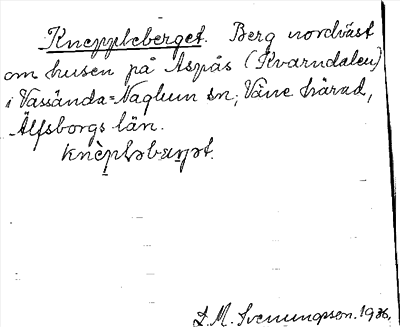 Kneppleberget. Berg nordväst
om husen på Aspås (Kvarndalen)
i Vassända-Naglum sn, Väne härad,
Älfsborgs län.
D.M. Svenungsson. 1926.